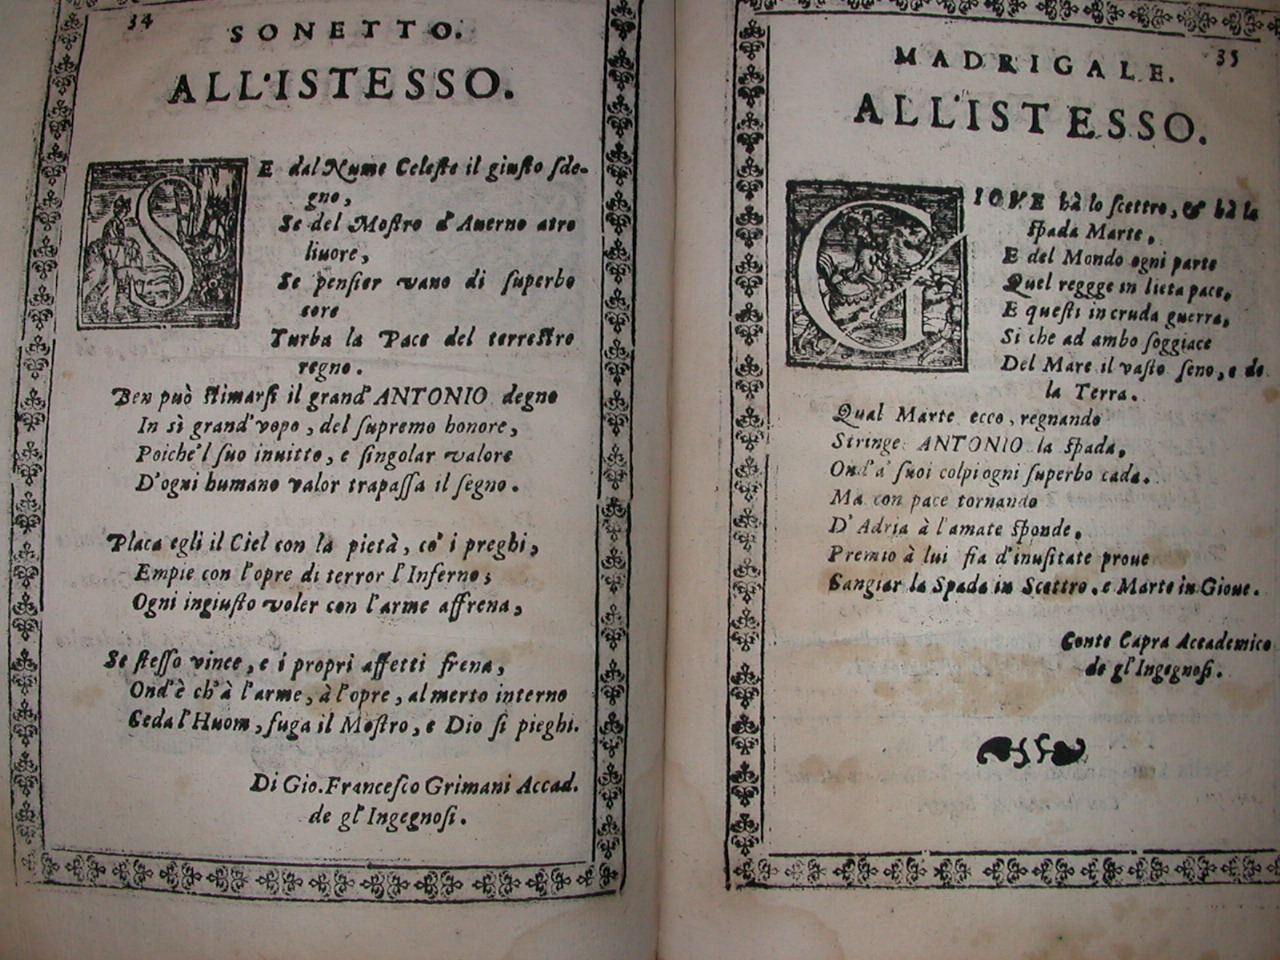 34
SONETTO.
ALL'ISTESSO.
SE dal Nume Celeste il giusto sde-
gno,
Se del Mostro d'Auerno atro
liuore,
Se pensier vano di superbo
core
Turba la Pace del terrestro
regno.
Ben può stimarsi il grand' ANTONIO degno
In sì grand'vopo, del supremo honore,
Poiche'l suo inuitto, e singolar valore
D'ogni humano valor trapassa il segno.
Placa egli il Ciel con la pietà, co' i preghi,
Empie con l'opre di terror l'Inferno;
Ogni ingiusto voler con l'arme affrena,
Se stesso vince, e i propri affetti frena,
Ond'è ch'à l'arme, à l'opre, al merto interno
Ceda l'Huom, fuga il Mostro, e Dio si pieghi.
Di Gio. Francesco Grimani Accad.
de gl'Ingegnosi.
35
MADRIGALE.
ALL'ISTESSO.
GIOVE hà lo scettro, & hà la
spada Marte,
E del Mondo ogni parte
Quel reggge in lieta pace,
E questi in cruda guerra,
Si che ad ambo soggiace
Del Mare il vasto seno, e de
la Terra.
Qual Marte ecco, regnando
Stringe ANTONIO la spada,
Ond'a' suoi colpi ogni superbo cada.
Ma con pace tornando
D'Adria à l'amate sponde,
Premio à lui fia d'inusitate proue
Cangiar la Spada in Scettro, e Marte in Gioue.
Conte Capra Accademico
de gl'Ingegnosi.